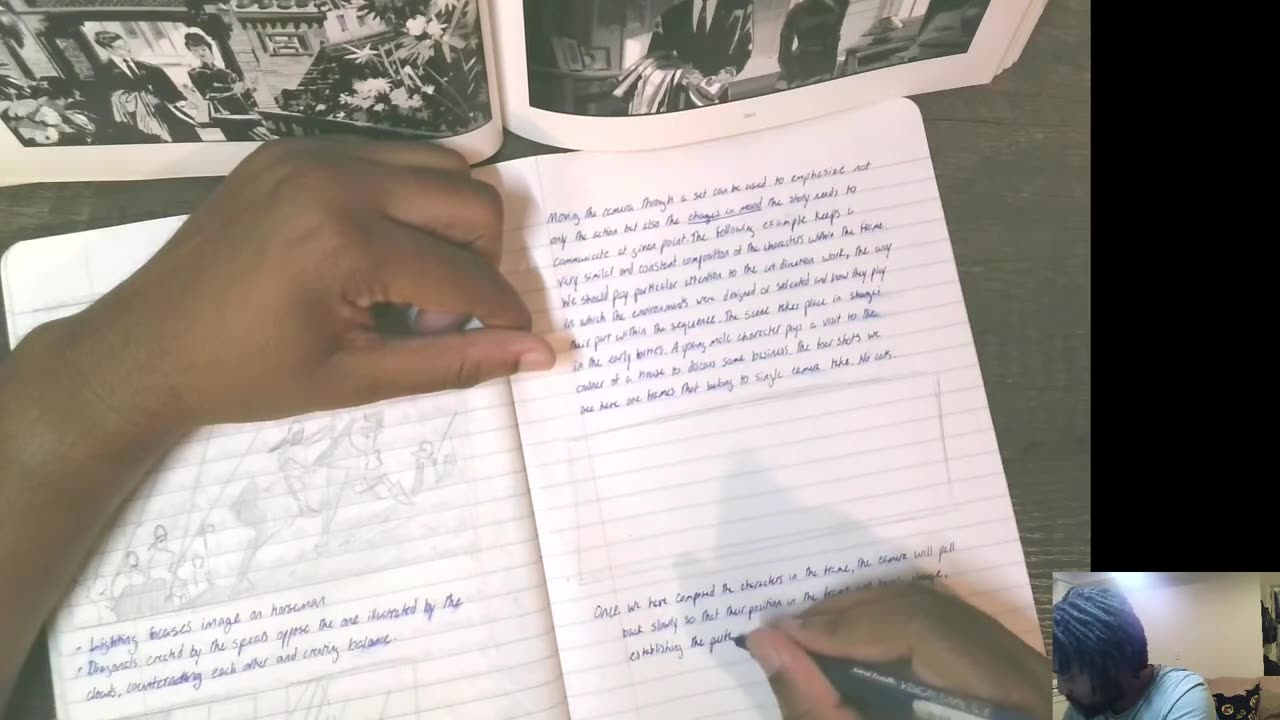 Moving the camera through a set can be used to emphasize not
only the action but also the changes in mood the story needs to
communicate at given point. The following example keeps a
very similar and constant composition of the characters within the frame.
We should pay particular attention to the art direction work, the way
in which the environments were designed or selected and how they play
their part within the sequence. The scene takes place in
in the early forties. A young male character pays a visit to the
owner of a house to discuss some business. The four shots we
see here are frames that belong to single camera take. No cuts.
Once we have composed the characters in the frame, the camera will pull
back slowly so that their position in the frame change,
establishing the
• Lighting focuses image on horseman
• Diagonals created by the spears oppose the one illustrated by the
clouds, counteracting each other and creating balance.